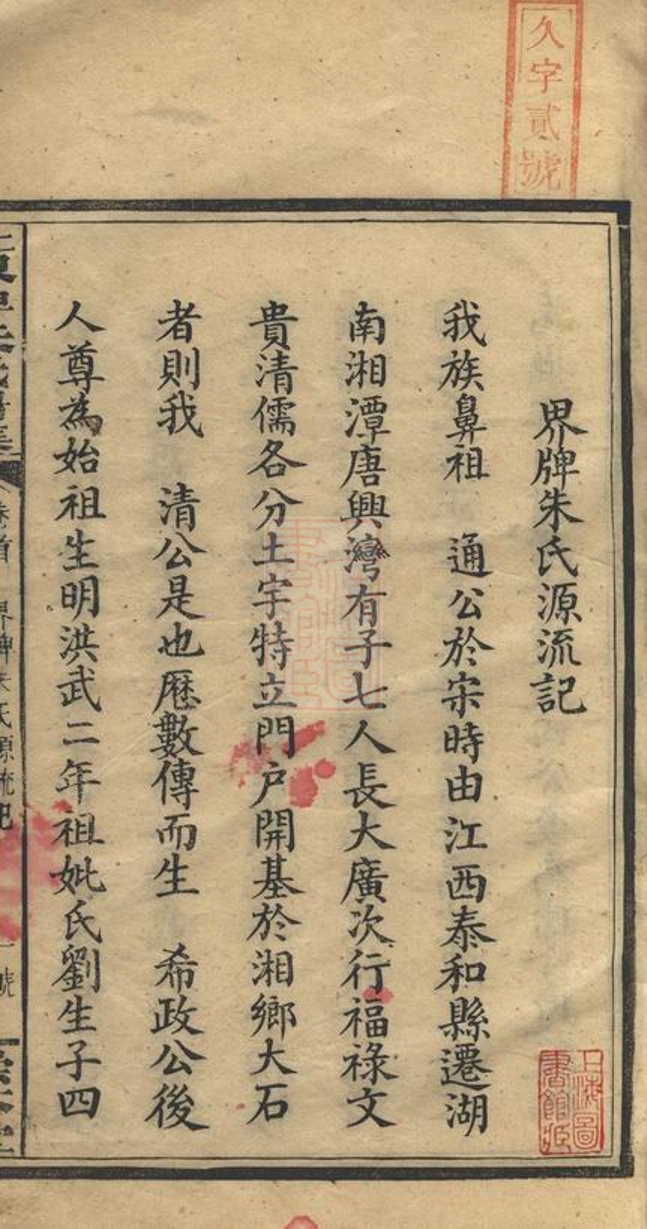 久字貳號
界牌朱氏源流記
我族鼻祖　通公於宋時由江西泰和縣遷湖
南湘潭唐興灣有子七人長大廣次行福祿文
貴清儒各分土宇特立門戶開基於湘鄉大石
者則我　清公是也歷數傳而生　希政公後
人尊為始祖生明洪武二年祖妣氏劉生子四
卷首　界牌朱氏源流記
上海圖書館藏